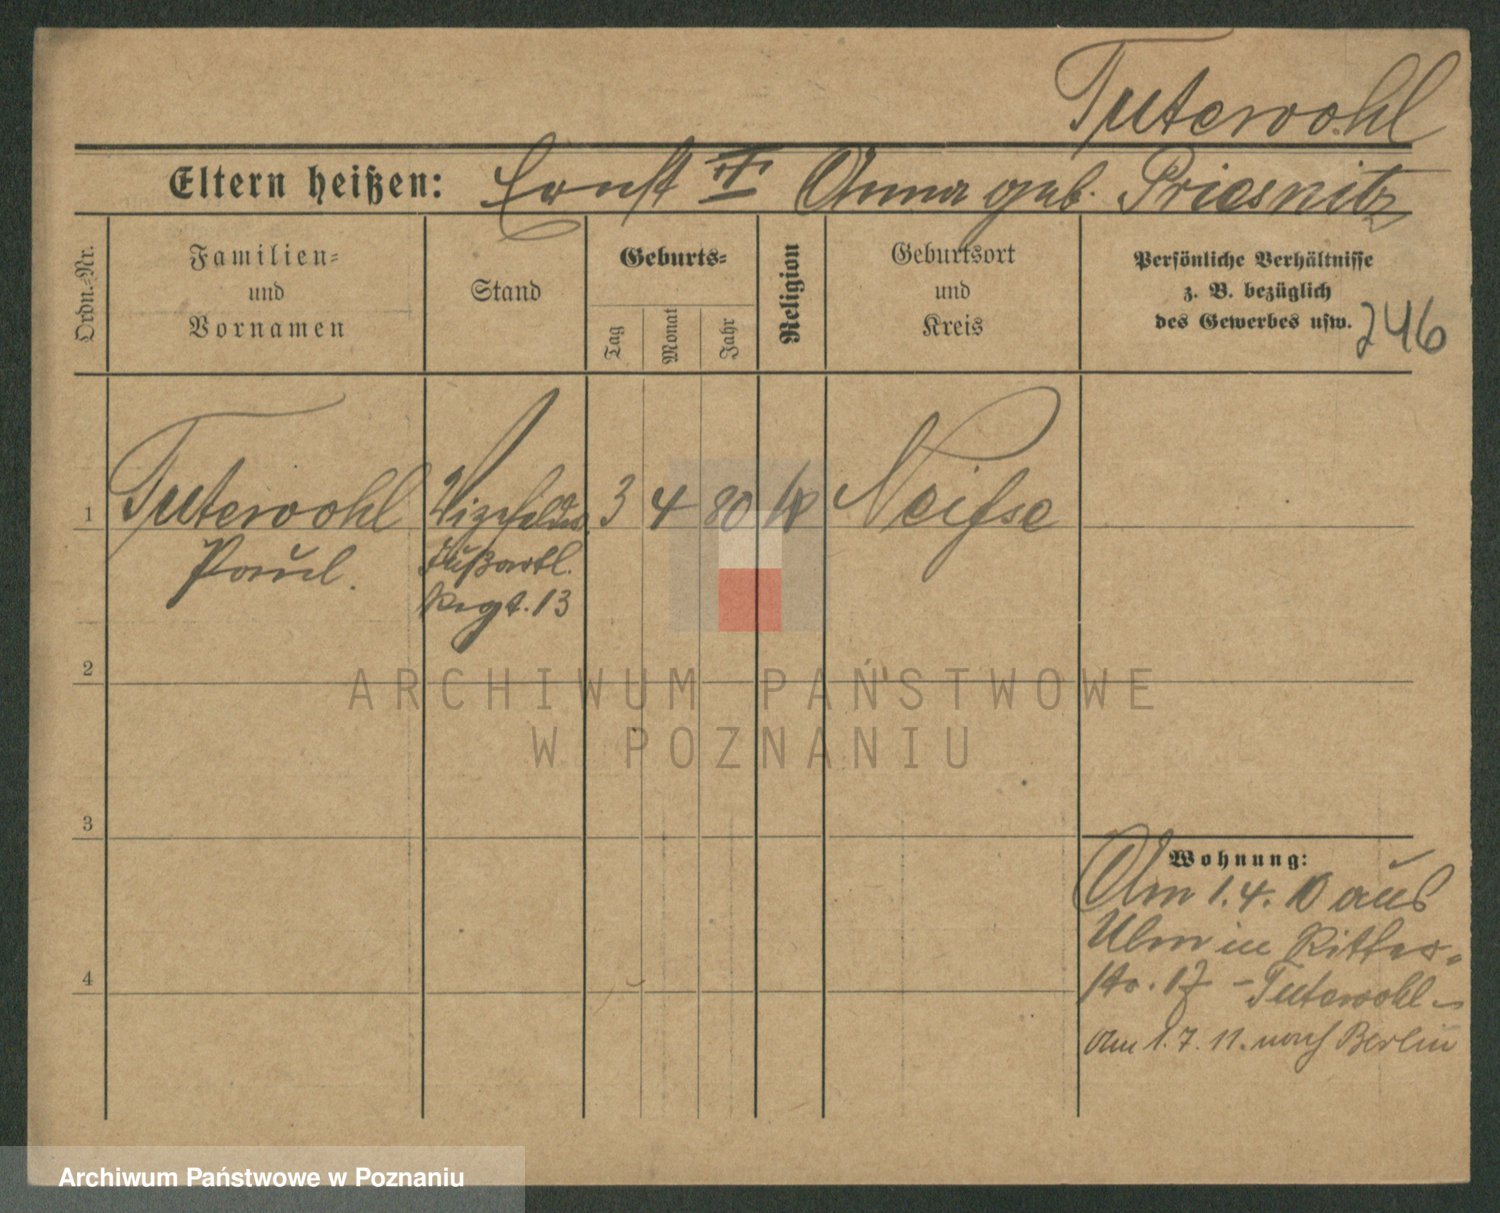 Tutewohl
Eltern heißen: Ernst u. Anna geb. Priesnitz
Ordn.-Nr.
Familien=
und
Vornamen
Stand
Geburts=
Tag
Monat
Jahr
Religion
Geburtsort
und
Kreis
Persönliche Verhältnisse
z. B. bezüglich
des Gewerbes usw.
246
1 Tutewohl Vizefeldw. 3 4 80 k Neisse
Paul. Fußartl.
Regt. 13
2
ARCHIWUM PAŃSTWOWE
W POZNANIU
3
Wohnung:
Am 1.4.10 aus
Ulm in Ritter-
str. 17 - Tutewohl -
am 1.7.11. nach Berlin
4
Archiwum Państwowe w Poznaniu